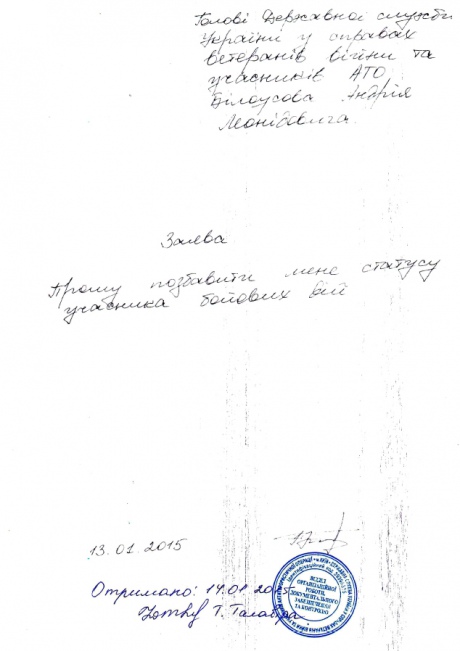 Голові Державної служби
України у справах
ветеранів війни та
учасників АТО
Білоусова Андрія
Леонідовича
Заява
Прошу позбавити мене статусу
учасника бойових дій
13.01.2015
Отримано: 14.01.2015
Т.
ВІДДІЛ
ОРГАНІЗАЦІЙНОЇ
РОБОТИ,
ДОКУМЕНТАЛЬНОГО
ЗАБЕЗПЕЧЕННЯ
ТА КОНТРОЛЮ